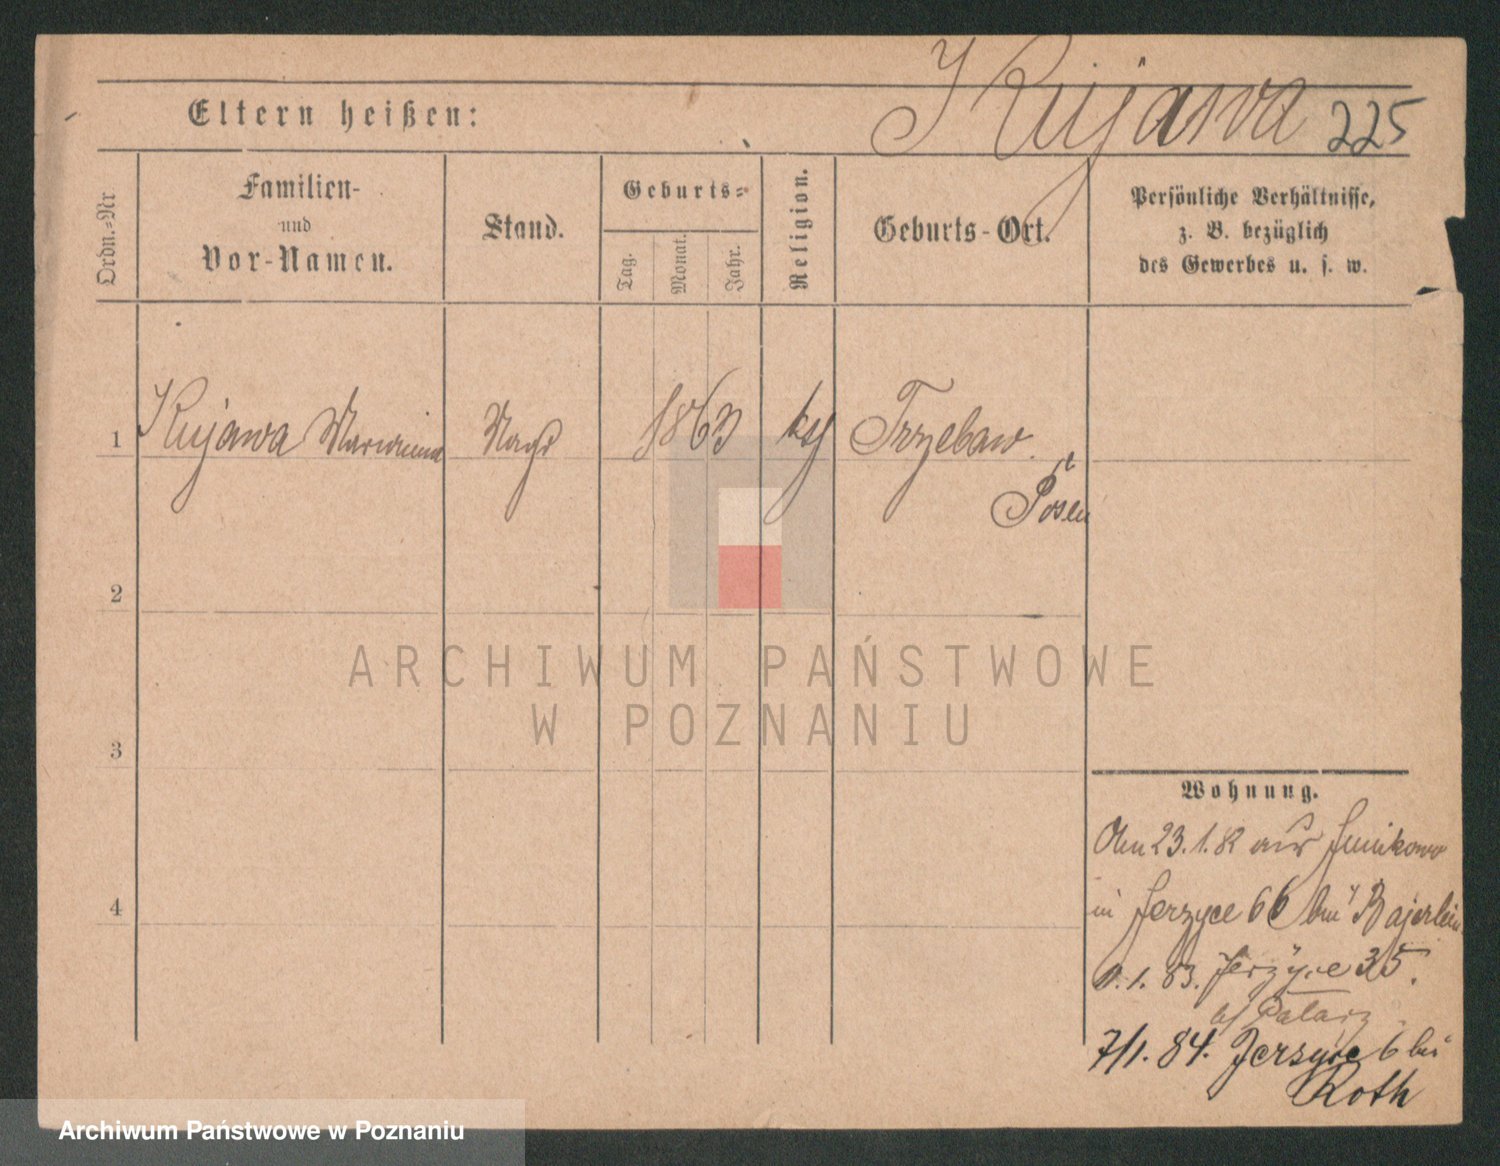 Kujawa 225
Eltern heißen:
Ordn.-Nr
Familien-
und
Vor-Namen.
Stand.
Geburts-
Tag.
Monat.
Jahr.
Religion.
Geburts-Ort.
Persönliche Verhältnisse,
z. B. bezüglich
des Gewerbes u. s. w.
1 Kujawa Marianna Magd 1863 kath Trzebaw
Posen
2
3
4
ARCHIWUM PAŃSTWOWE
W POZNANIU
Wohnung.
23.1.82 aus Junikowo
in Jerzyce 66 bei Bajerlein
1.1.83. Jerzyce 35.
bei Patarz
7/1.84. Jerzyce 6 bei
Roth
Archiwum Państwowe w Poznaniu